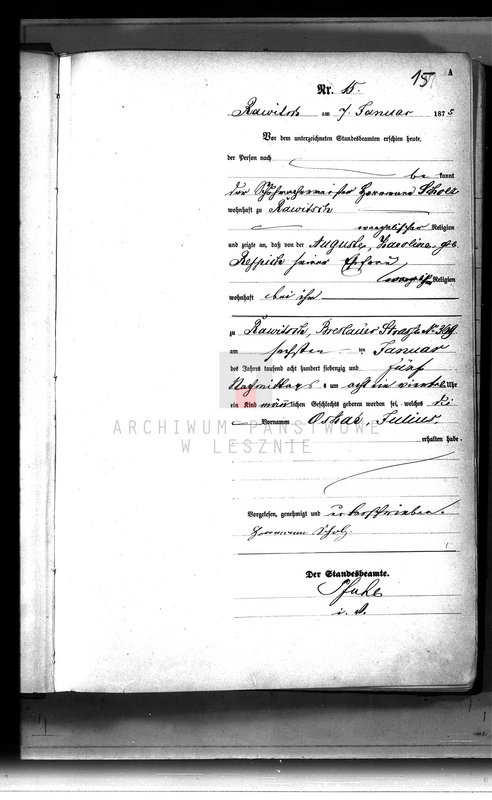 15 A
Nr. 15.
Rawitsch am 7. Januar 1875
Vor dem unterzeichneten Standesbeamten erschien heute,
der Person nach
be kannt
der Schuhmachermeister Herrmann Scholz
wohnhaft zu Rawitsch
evangelischer Religion
und zeigte an, daß von der Auguste, Karoline, geb.
seiner Ehefrau
Religion
wohnhaft bei ihm
zu Rawitsch, Breslauer Straße No
am sechsten ten Januar
des Jahres tausend acht hundert siebenzig und fünf
Nachmittags um acht ein viertel Uhr
ein Kind männlichen Geschlechts geboren worden sei, welches die
Vornamen Oskar, Julius,
erhalten habe
ARCHIWUM PAŃSTWOWE
W LESZNIE
Vorgelesen, genehmigt und unterschrieben.
Herrmann Scholz
Der Standesbeamte.